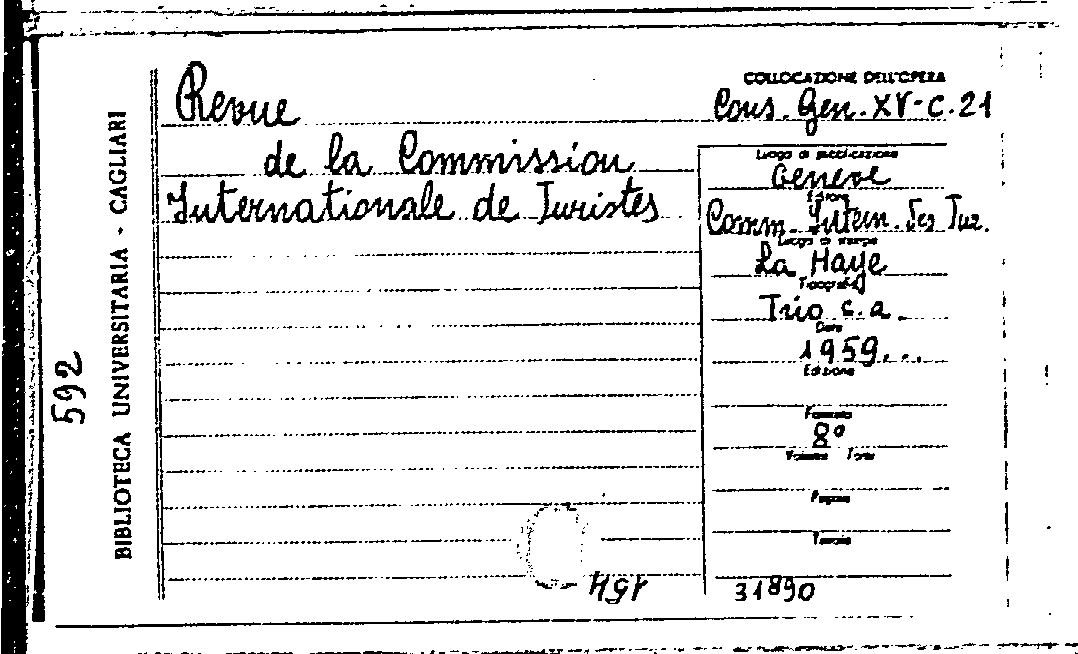 COLLOCAZIONE DELL'OPERA
Cons. Gen. XV-C.21
Revue
de la Commission
Internationale de Juristes
Luogo di pubblicazione
Geneve
Comm. Intern. Jur.
Luogo di stampa
La Haye
Tipografia
Trio c.a.
Data
1959...
Edizione
Formato
8º
Volume Tomo
Pagine
Tavole
31890
592
BIBLIOTECA UNIVERSITARIA - CAGLIARI